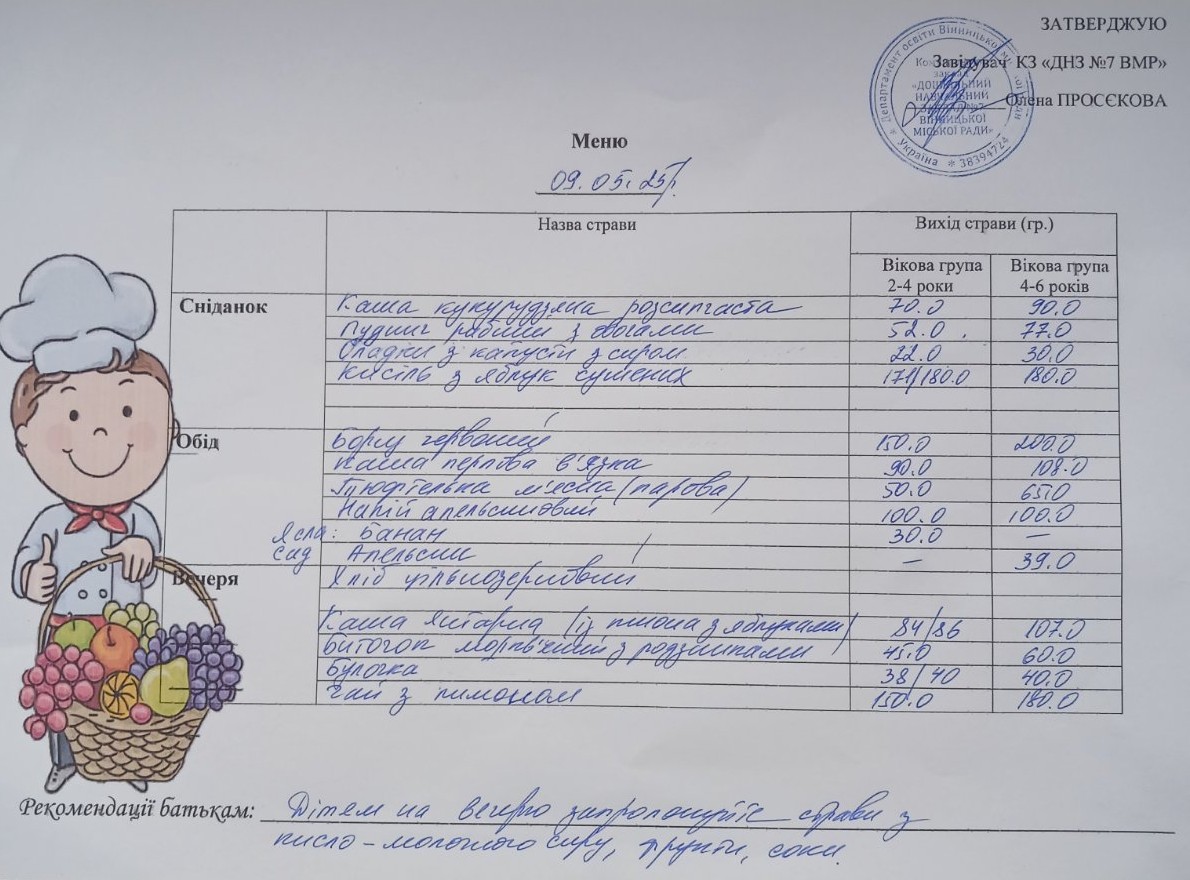 ЗАТВЕРДЖУЮ
Завідувач КЗ «ДНЗ №7 ВМР»
Олена ПРОСЄКОВА
Департамент освіти Вінницької
«ДОШКІЛЬНИЙ
НАВЧАЛЬНИЙ
ВІННИЦЬКОЇ
МІСЬКОЇ РАДИ»
Україна * 38394724
Меню
09.05.25р.
Назва страви Вихід страви (гр.)
Вікова група 2-4 роки Вікова група 4-6 років
Сніданок Каша кукурудзяна розсипчаста 70.0 90.0
Пудинг рибний з овочами 52.0 77.0
Оладки з капусти з сиром 22.0 30.0
Кисіль з яблук сушених 171/180.0 180.0
Обід Борщ червоний 150.0 200.0
Каша перлова в'язка 90.0 108.0
Тюфтелька м'ясна (парова) 50.0 65.0
Напій апельсиновий 100.0 100.0
Ясла: Банан 30.0 —
сад Апельсин — 39.0
Вечеря Хліб цільнозерновий
Каша Янтарна (із пшона з яблуками) 84/86 107.0
Биточок морквяний з родзинками 45.0 60.0
Булочка 38/40 40.0
Чай з лимоном 150.0 180.0
Рекомендації батькам: Дітям на вечерю запропонуйте страви з
кисло-молочного сиру, фрукти, соки.